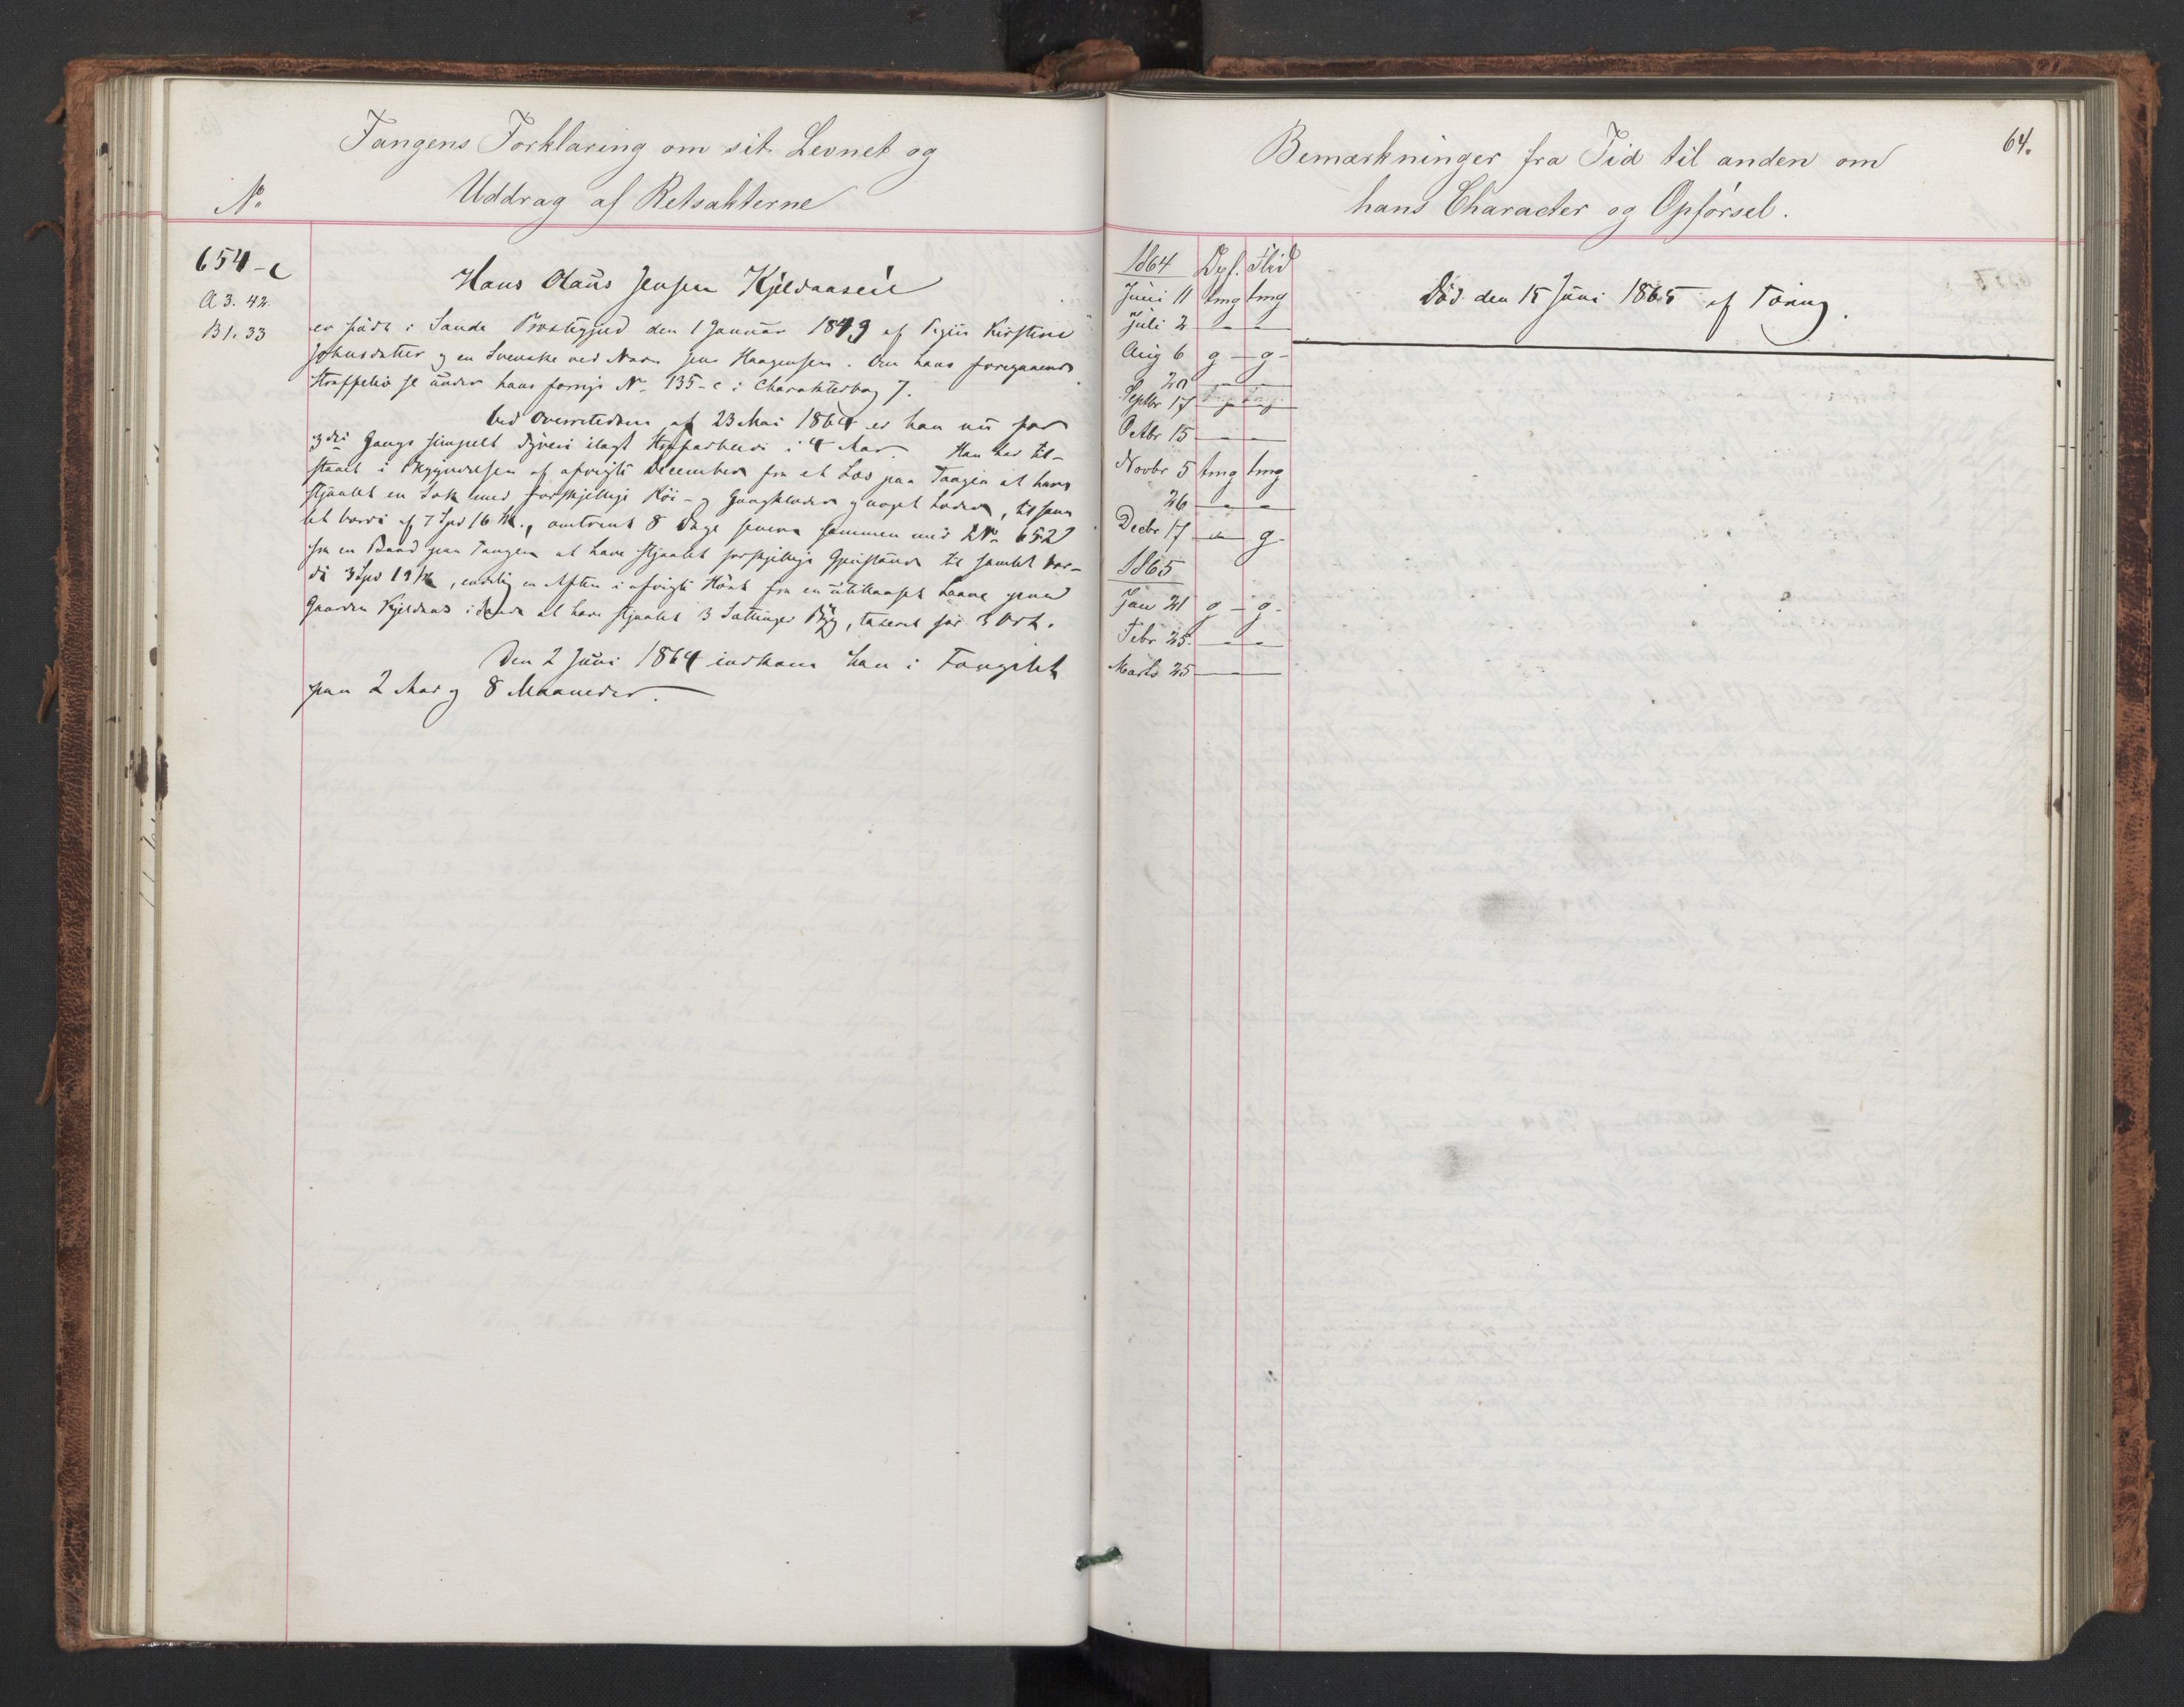 Fangens Forklaring om sit Levnet og
Uddrag af Retsakterne
No
654-c
A 3. 42.
B 1. 33
Hans Olaus Jensen Kjeldaaseie
er född i Sande Præstegjeld den 1 Januar 1849 af Pigen Kirstine
Johnsdatter og en Svenske ved Navn Jens Haagensen. Om hans foregaaende
Straffeliv se under hans forrige No 135-c i Charakterbog 7.
Ved Overretsdom af 23 Mai 1864 er han nu for
3die Gangs simpelt Tyveri ilagt Strafarbeide i 4 Aar. Han har til-
staaet i Begyndelsen af afvigte December fra et Læs paa Tangen at have
stjaalet en Sæk med forskjellige Köi- og Gangklæder og noget Læder, til sam-
let Værdi af 7 Spd 16 sk., omtrent 8 Dage senere sammen med No 652
fra en Baad paa Tangen at have stjaalet forskjellige Gjenstande til samlet Vær-
di 3 Spd 19 sk, endelig en Aften i afvigte Höst fra en utillaaset Laave paa
Gaarden Kjeldaas i Sande at have stjaalet 3 Sættinger Byg, taxeret for 3 Ort.
Den 2 Juni 1864 indkom han i Fængslet
paa 2 Aar og 8 Maaneder.
64.
Bemærkninger fra Tid til anden om
hans Character og Opförsel.
1864 Opf. Flid
Juni 11 tmg tmg
Juli 2 - -
Aug 6 g - g -
20 - -
Septbr 17 - -
Octbr 15 - -
Novbr 5 tmg tmg
26 - -
Decbr 17 - g
1865
Jan 21 g - g -
Febr 25 - -
Marts 25 - -
Död den 15 Juni 1865 af Tæring.